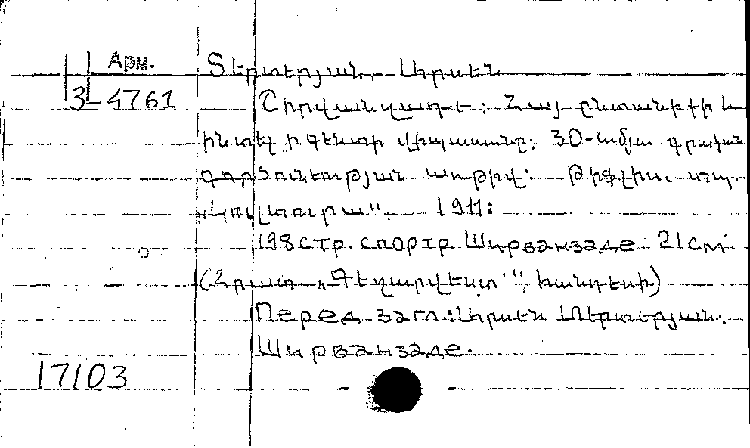 Арм.
3-4761
Տէրտէրյան, Արսէն
Շիրվանզադէ: Հայ ընտանիքի և
ինտելիգենտի վիպասանը: 30-ամյա գրական
գործունեության առթիվ: Թիֆլիս, տպ.
„Կուլտուրա", 1911:
198 стр. с портр. Ширванзаде. 21 см
(Հրատ. „Գեղարվեստ", հանդեսի)
Перед загл.: Արսէն Տէրտէրյան.
Ширванзаде.
17103